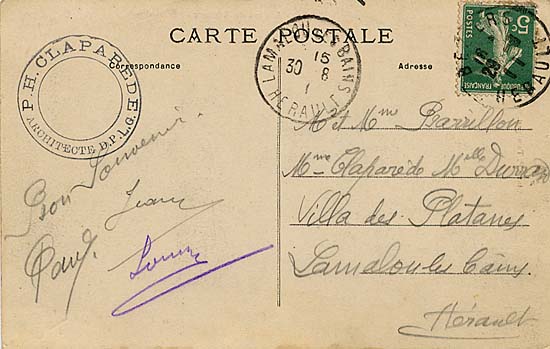 CARTE POSTALE
Correspondance
Adresse
P.H. CLAPAREDE
ARCHITECTE D.P.L.G.
LAMALOU LES BAINS
15
30 8
HERAULT
5c
POSTES
HERAULT
Bon Souvenir.
Jean
Paul.
Louise
M et Mme Barrillon
Mme Claparède Melle
Villa des Platanes
Lamalou les Bains
Hérault